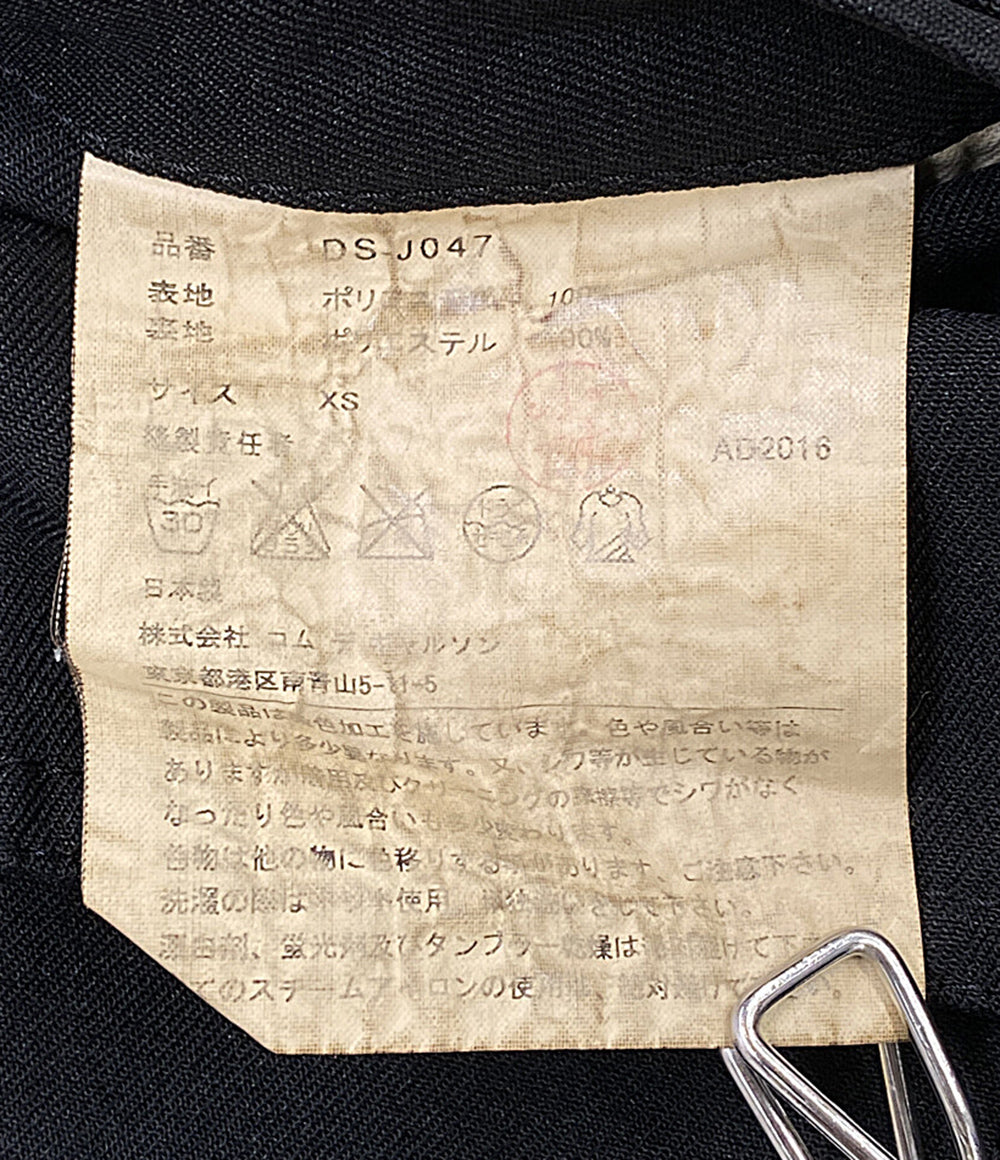 品番 DS-J047
表地 ポリエステル 100%
裏地 ポリエステル 100%
サイズ XS
縫製責任者
AD2016
手洗イ
30
日本製
株式会社 コム デ ギャルソン
東京都港区南青山5-11-5
この製品は染色加工を施しています。色や風合い等は
製品により多少異なります。又、シワ等が生じている物が
ありますが着用及びクリーニングの摩擦等でシワがなく
なったり色や風合いも多少変わります。
色物は他の物に色移りする事があります、ご注意下さい。
洗濯の際はネット使用、単独洗いをして下さい。
漂白剤、蛍光剤及びタンブラー乾燥はお避けて下
てのスチームアイロンの使用は、絶対避けて